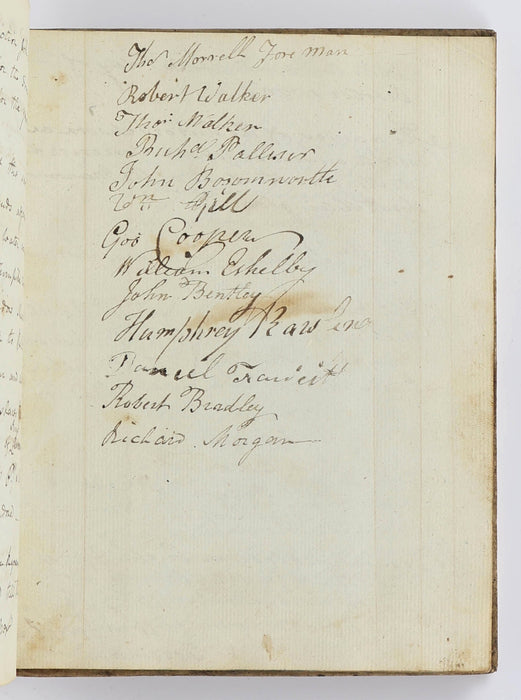 Thos Morrell Fore man
Robert Walker
Thos Walker
Richd Palliser
John Bosomworth
Wm Hill
Geo Cooper
William Eshelby
John Bentley
Humphrey Rawling
Daniel
Robert Bradley
Richard Morgan